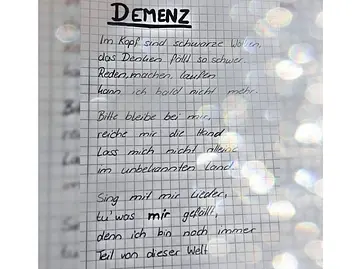 DEMENZ
Im Kopf sind schwarze Wolken,
das Denken fällt so schwer.
Reden, machen, laufen
kann ich bald nicht mehr.
Bitte bleibe bei mir,
reiche mir die Hand.
Lass mich nicht alleine
im unbekannten Land.
Sing mit mir Lieder,
tu' was mir gefällt,
denn ich bin noch immer
Teil von dieser Welt